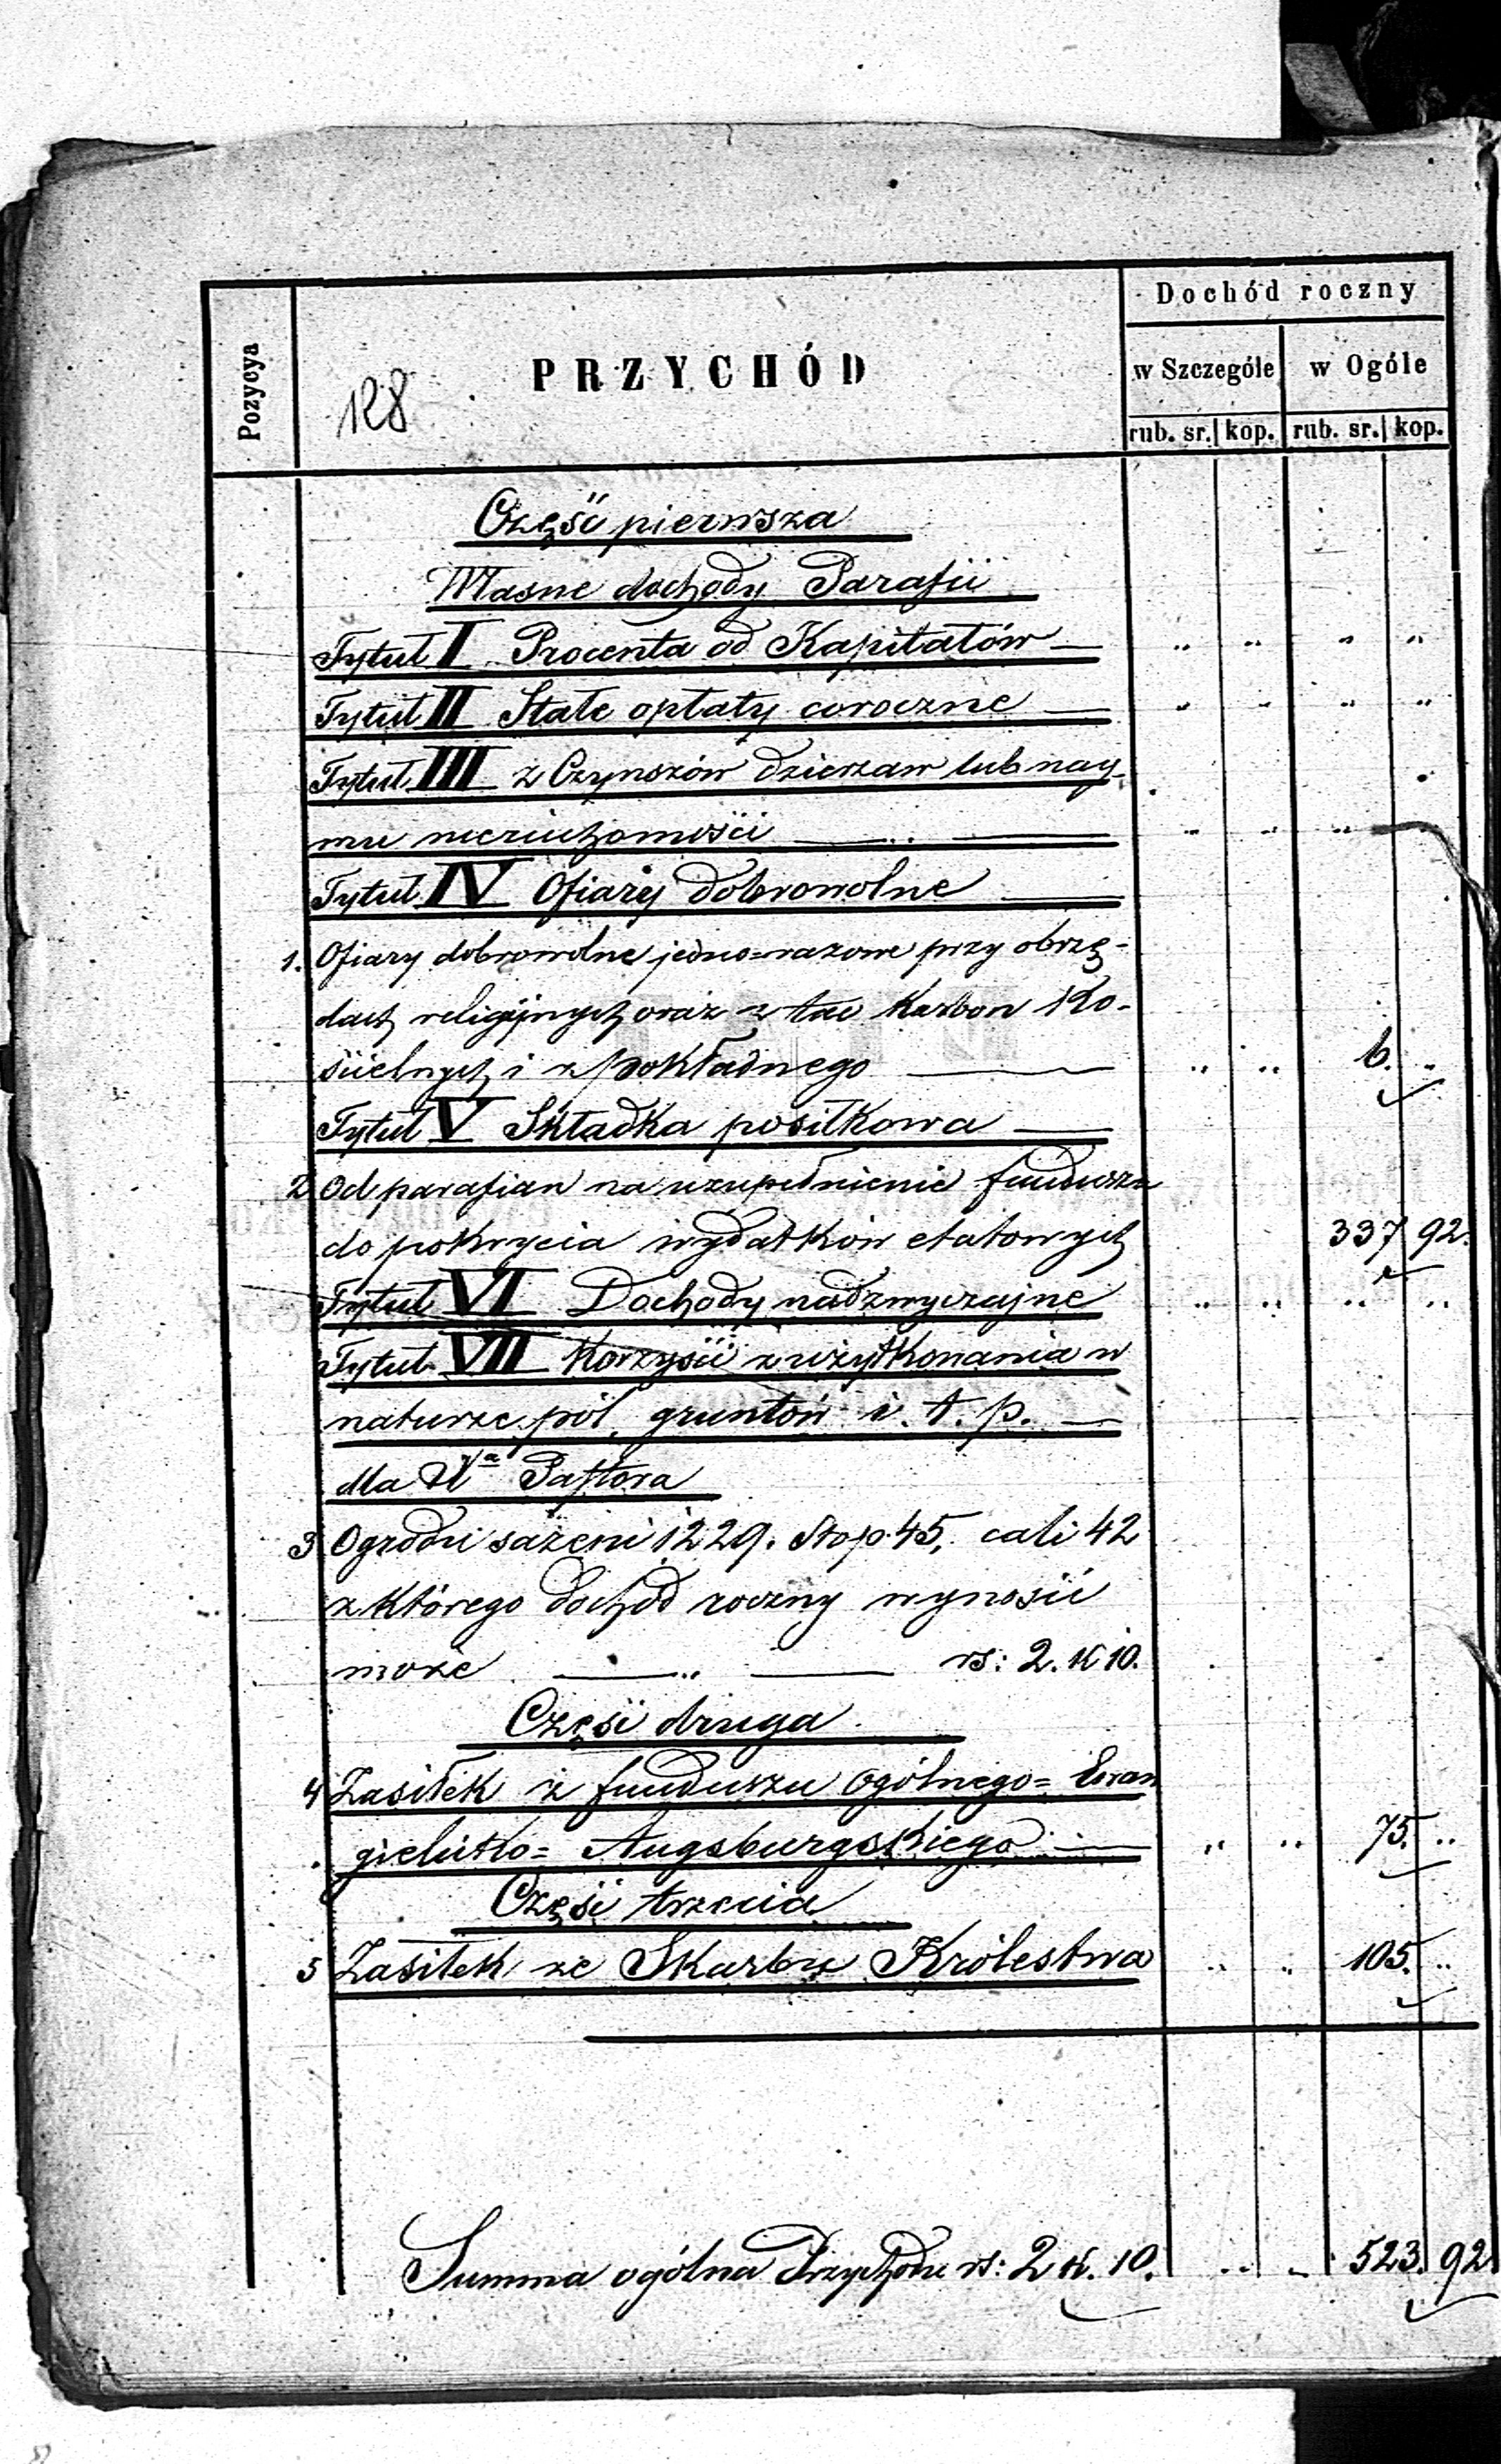 Dochód roczny
Pozycya
PRZYCHÓD
w Szczególe
w Ogóle
128
rub. sr. kop. rub. sr. kop.
Część pierwsza
Własne dochody Parafii
Tytuł I Procenta od Kapitałów — „ „ „ „
Tytuł II Stałe opłaty coroczne — „ „ „ „
Tytuł III z Czynszów dzierzaw lub nay-
mu nieruchomości — „ — „ „ „
Tytuł IV Ofiary dobrowolne —
1. Ofiary dobrowolne jedno=razowe przy obrzę-
dach religijnych oraz z tac Karbon Ko-
ścielnych i z pokładnego — „ „ 6. „
Tytuł V Składka posiłkowa —
2 Od parafian na uzupełnienie funduszu
do pokrycia wydatków etatowych 337 92.
Tytuł VI Dochody nadzwyczajne „ „ „ „
Tytuł VII Korzyści z użytkowania w
naturze pól, gruntów i. t. p. —
dla Pastora
3 Ogrodu sażeni 1229. Stop 45, cali 42
z którego dochód roczny wynosić
może — „ — rs: 2. k 10.
Część druga
4 Zasiłek z funduszu Ogólnego= Ewan
gielicko= Augsburgskiego — „ „ 75. „
Część trzecia
5 Zasiłek ze Skarbu Królestwa „ „ 105. „
Summa ogólna Przychodu rs: 2 k. 10. „ „ 523. 92